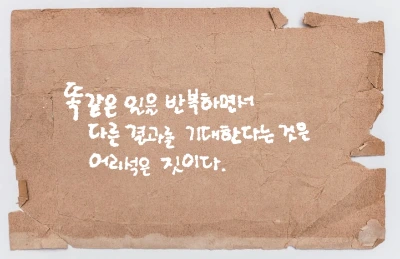 똑같은 일을 반복하면서
다른 결과를 기대한다는 것은
어리석은 짓이다.